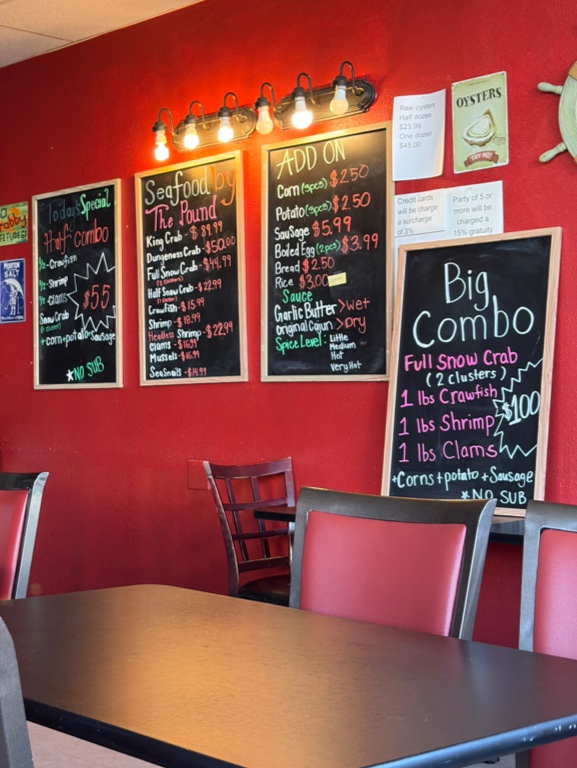 MORTON
SALT
Today's Special
Half combo
1/2 - Crawfish
1/2 - Shrimp
1/2 - Clams
Snow Crab
+corn+potato+Sausage
$55
*NO SUB
Seafood by
The Pound
King Crab - $89.99
Dungeness Crab - $50.00
Full Snow Crab - $44.99
(2 clusters)
Half Snow Crab - $22.99
Crawfish - $15.99
Shrimp - $18.99
Headless Shrimp - $22.99
Clams - $16.99
Mussels - $16.99
Sea Snails - $14.99
ADD ON
Corn (3pcs) $2.50
Potato (3pcs) $2.50
Sausage $5.99
Boiled Egg (2pcs) $3.99
Bread $2.50
Rice $3.00
Sauce
Garlic Butter >Wet
Original Cajun >Dry
Spice Level: Little
Medium
Hot
Very Hot
Raw oyster
Half dozen
$23.99
One dozen
$45.00
OYSTERS
Credit cards
will be charge
a surcharge
of 3%
Party of 5 or
more will be
charged a
15% gratuity
Big
Combo
Full Snow Crab
(2 clusters)
1 lbs Crawfish
1 lbs Shrimp
1 lbs Clams
$100
+Corns+potato+Sausage
*NO SUB